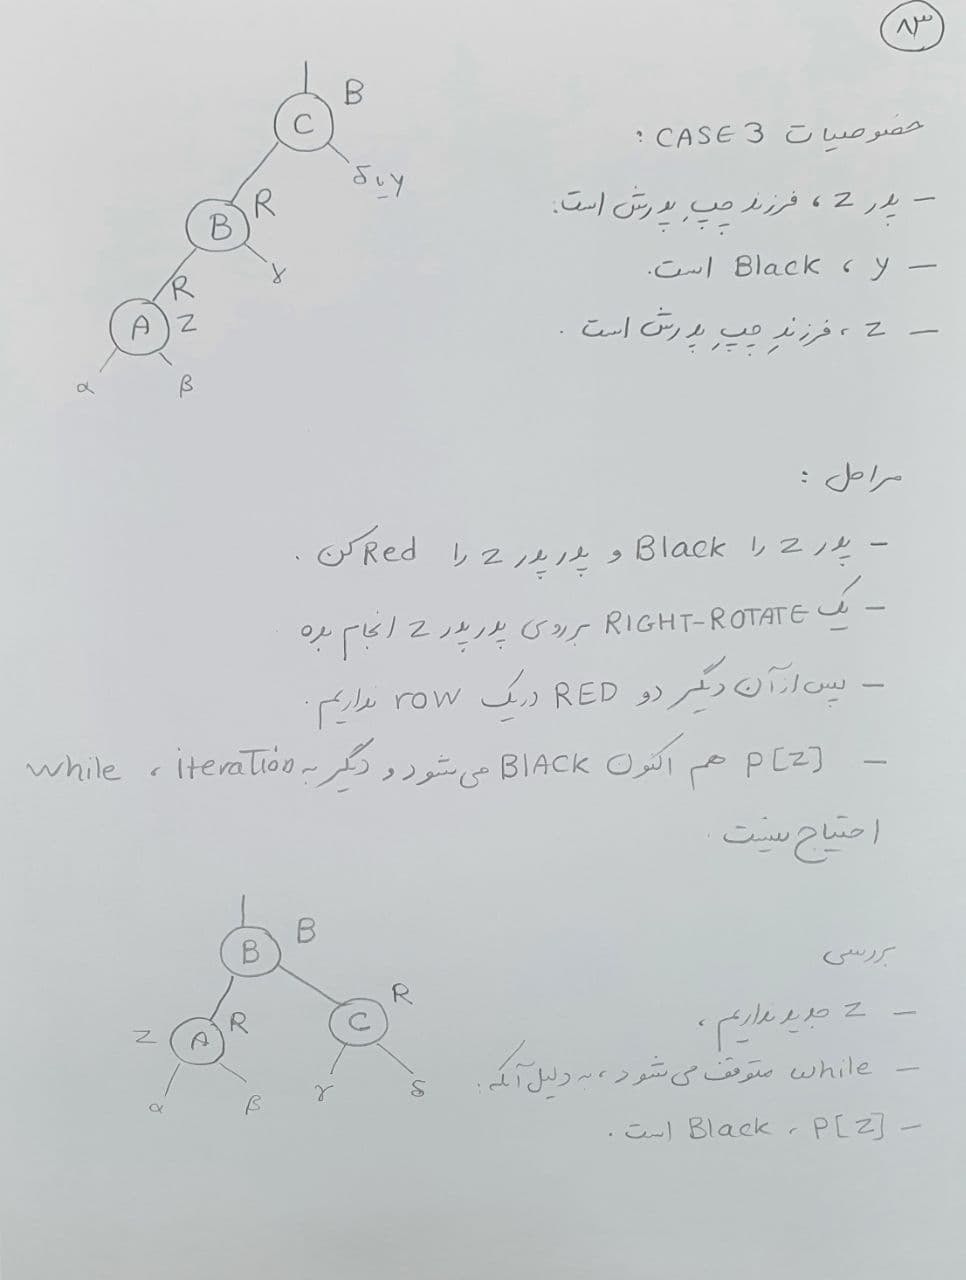 ۸۳
خصوصیات CASE 3 :
– پدر z ، فرزند چپِ پدرش است.
– y ، Black است.
– z ، فرزندِ چپِ پدرش است .
C B
δ یا y
B R
γ
A R Z
α β
مراحل :
– پدر z را Black و پدر پدر z را Red کن .
– یک RIGHT-ROTATE بر روی پدر پدر z انجام بده
– پس از آن دیگر دو RED در یک row نداریم.
– P[z] هم اکنون BLACK می شود و دیگر به iteration ، while
احتیاج نیست .
B B
Z A R
C R
α β γ δ
بررسی
– z جدید نداریم ،
– while متوقف می شود ، به دلیل آنکه :
– P[z] ، Black است .